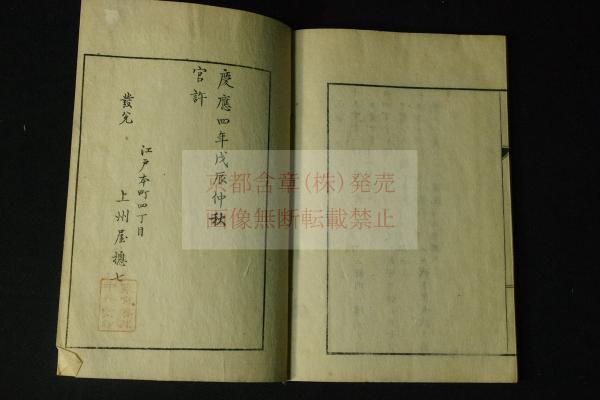 慶應四年戊辰仲秋
官許
發兌
江戸本町四丁目
上州屋摠七
京都含章(株)発売
画像無断転載禁止